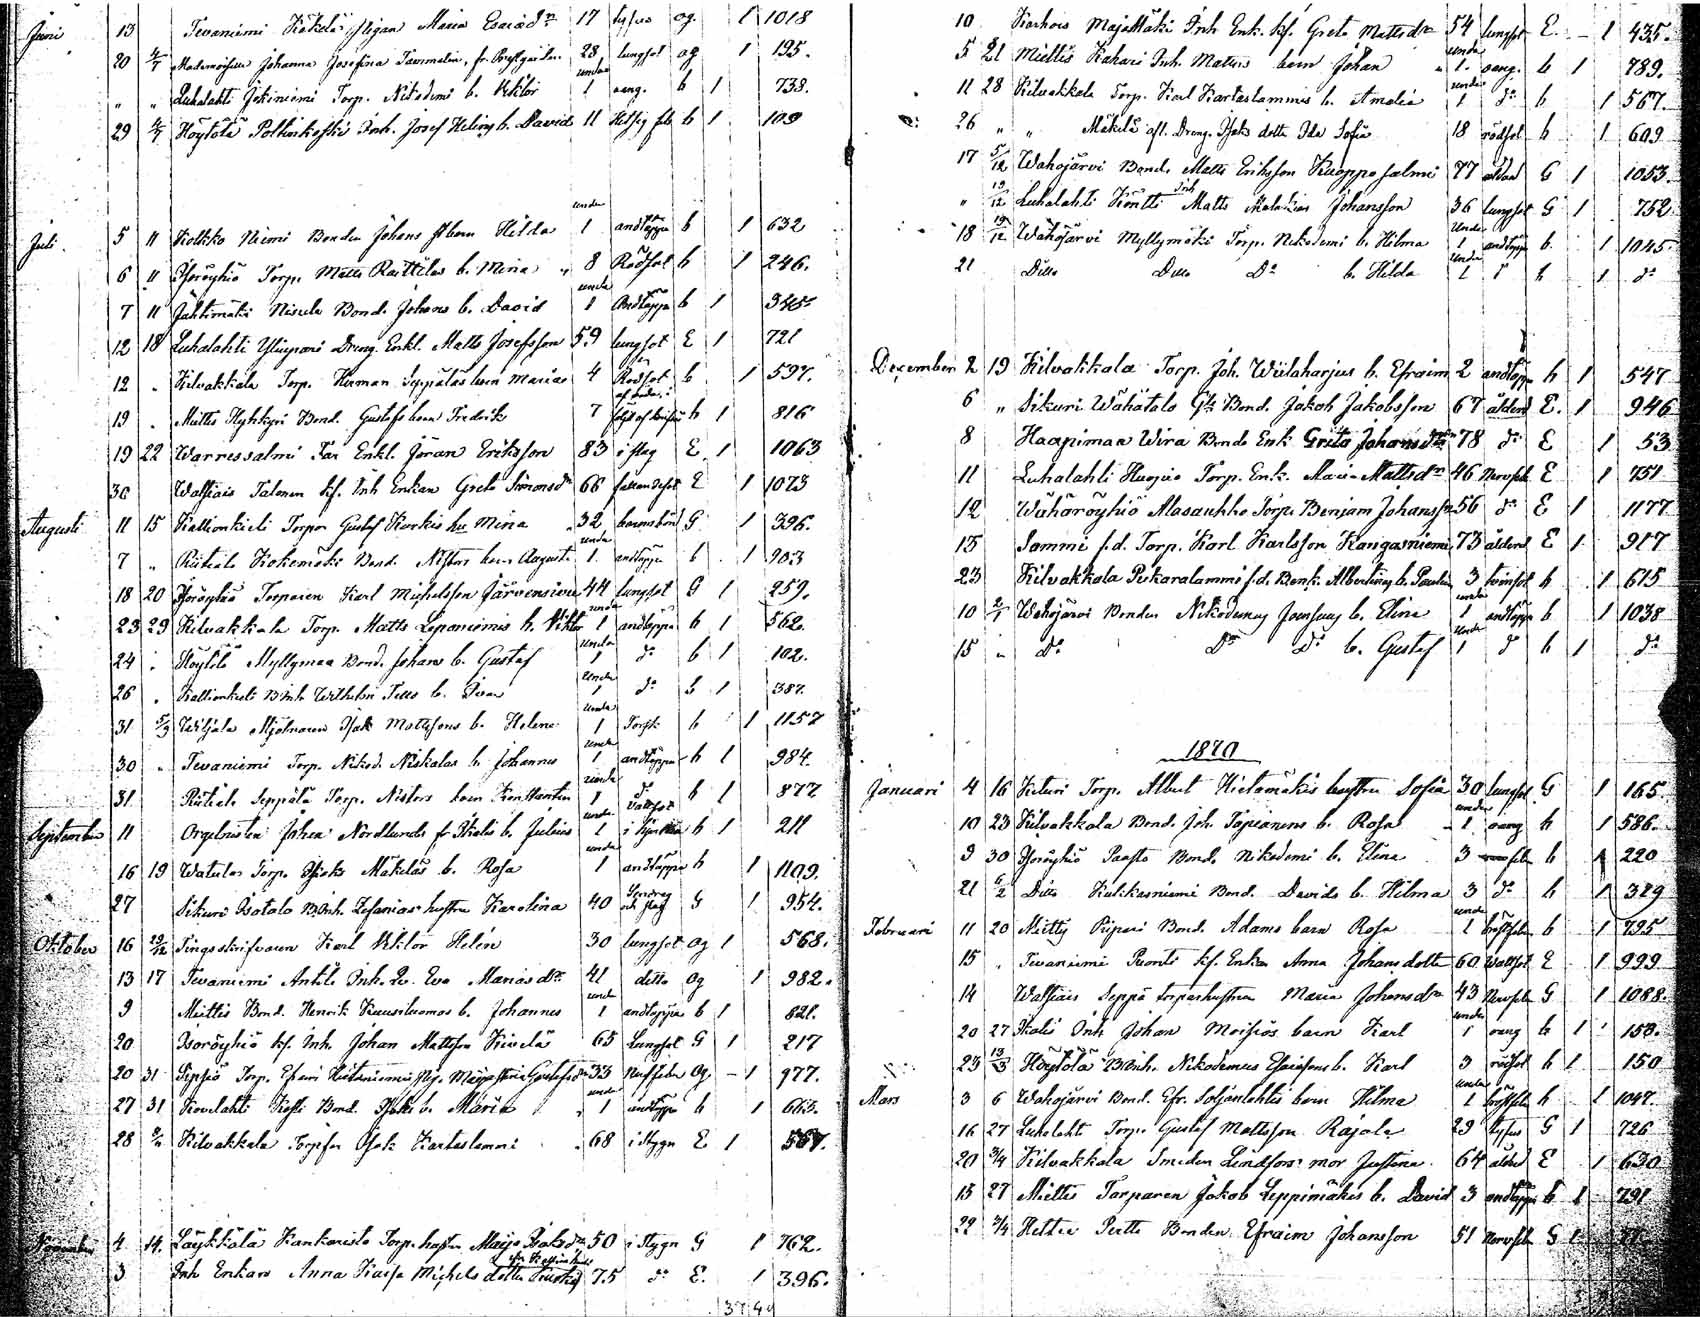 Juni 13 Tevaniemi Käkelä pigan Maria Esaiadr 17 tyfus og. 1 1018
20 4/7 Mademoisellen Johanna Josefina Tavaimalin, fr. Prestgården 28 lungsot og 1 195.
" " Luhalahti Jokiniemi Torp. Nikodemi b. Viktor under 1 oang. b 1 738.
29 4/7 Höytölä Poltinkoski Inh. Josef b. David 11 Hetsig feb b 1 109
Juli 5 11 Kolkko Niemi Bonden Johans barn Hilda under 1 andtäppa b 1 632
6 11 Isoröyhiö Torp. Matts Raittilas b. Mina 8 Rödsot b 1 246.
7 11 Jähtimäki Nisula Bond. Johans b. David under 1 Andtäppa b 1 345
12 18 Luhalahti Ylinepäri Dreng. Enkl. Matts Josefsson 59 lungsot E 1 721
12 " Kilvakkala Torp. Herman Seppäläs barn Marias 4 Rödsot b 1 597.
19 " Miettis Hyhkyri Bond. Gustafs barn Fredrik 7 b 1 816
19 22 Warvessalmi Far Enkl. Jöran Eriksson 83 i slag E 1 1063
30 Walfiais Talonen kf. Inh Enkan Greta Simonsdr 66 fallandesot E 1 1073
Augusti 11 15 Kallionkieli Torpar Gustaf Korkis hu Mina 32 barnsbörd G 1 396.
7 " Riitiala Kokemäki Bond. Nestors barn August under 1 andtäppa b 1 903
18 20 Isoröyhiö Torparen Karl Michelsson Järvensivu 44 lungsot G 1 259.
23 29 Kilvakkala Torp. Matts Leponiemis b. Viktor under 1 andtäppa b 1 562.
24 " Höytölä Myllymaa Bond. Johans b. Gustaf under 1 do b 1 102.
26 " Kallionkieli B.inh. Wilhelm b. Ivar under 1 do b 1 387.
31 5/9 Wiljala Mjölnaren Isak Mattssons b. Helena under 1 Torsk b 1 1157
30 " Tevaniemi Torp. Nikod. Niskalas b. Johannes under 1 andtäppa b 1 984.
31 Riitiala Seppälä Torp. Nestors barn Konstantin under 1 do b 1 877
September 11 Orgelnisten Johan Nordlunds fr Ikalis b. Julius under 1 Vattsot i hjernan b 1 211
16 19 Watulas Torp. Isaks Mäkeläs b. Rosa under 1 andtäppa b 1 1109.
27 Sikuri Isotalo B.Inh. Zefanias hustru Karolina 40 Sendrag och slag G 1 954.
Oktober 16 29/12 Tingsskrifvaren Karl Viktor Helén 30 lungsot og 1 568.
13 17 Tevaniemi Antila Inh. Eva Mariasdr 41 ditto og 1 982.
9 Miettis Bond. Henrik Kuusiluomas b. Johannes under 1 andtäppa b 1 821.
20 Isoröyhiö kf. Inh. Johan Mattsson Kivelä 65 Lungsot G 1 217
20 31 Sipsiö Torp. Efraim Hietaniemi Gustafsdr 33 Nerffeber og 1 977.
27 31 Kovelahti Koski Bond. Isaks b. Maria under 1 andtäppa b 1 663.
28 Kilvakkala Torpfar Isak Kartaslammi 68 i Stygn E 1 567.
November 4 14. Läykkälä Kankaristo Torp.hustru Maija Isaksdr 50 i Stygn G 1 762.
3 Inh Enkan Anna Kaisa Michelsdotter 75 do E. 1 396.
37 49
10 Karhois Majamäki Inh Enk. kf. Greta Mattsdr 54 lungsot E 1 435.
5 21 Miettis Kahari Inh. Matts barn Johan under 1 oang. b 1 789.
11 28 Kilvakkala Torp. Karl Kartaslammis b. Amalia under 1 do b 1 567.
26 " " Mäkelä afl. Dreng. Isaks dotter Ida Sofia 18 rödsot b 1 609
17 5/12 Wahojärvi Bond. Matts Eriksson Kuoppasalmi 77 ålderd G 1 1053.
" 19/12 Luhalahti Köntti Inh Matts Malakias Johansson 36 lungsot G 1 752
18 19/12 Wahojärvi Myllymäki Torp. Nikodemi b. Hilma under 1 andtäppa b. 1 1045
21 Ditto Ditto Do b. Hilda under 1 d b 1 do
December 2 19 Kilvakkala Torp. Joh. Wiilaharjus b. Efraim 2 andtäppa b 1 547
6 " Sikuri Wähätalo Gla Bond. Jakob Jakobsson 67 ålderd E. 1 946
8 Haapimaa Wira Bonde Enk Greta Johansdr 78 do E 1 53
11 Luhalahti Huopio Torp. Enk. Maria Mattsdr 46 Nervfeb E 1 751
12 Wähäröyhiö Masaukko Torp. Benjam Johansson 56 do E 1 1177
15 Sammi f.d. Torp. Karl Karlsson Kangasniemi 73 ålderd E 1 917
23 Kilvakkala Pukaralammi f.d. Bonk. Albertinas b. Paulina 3 tvinsot b 1 615
10 2/1 Wahojärvi Bonden Nikodemus Joensuus b. Elina under 1 andtäppa b 1 1038
15 " Do Do Do b. Gustaf under 1 d b 1 do
1870
Januari 4 16 Kituri Torp. Albert Hietamäkis hustru Sofia 30 lungsot G 1 165.
10 23 Kilvakkala Bond. Joh. Tapianens b. Rosa under 1 oang b 1 586.
9 30 Isoröyhiö Paasto Bond. Nikodemi b. Elina 3 b 1 220
21 6/2 Ditto Kulikasniemi Bond. Davids b. Hilma 3 do b 1 329
Februari 11 20 Miettis Piipari Bond. Adams barn Rosa under 1 bröstfeb b 1 795
15 " Tevaniemi Puonti kf. Enkan Anna Johansdotter 60 Wattsot E 1 999
14 Walfiais Seppä torparehustrun Maria Johansdr 43 Nervfeb G 1 1088.
20 27 Ikalis Inh Johan Moisiös barn Karl under 1 oang b 1 158.
23 13/3 Höytölä B.inh. Nikodemus Esaiassons b. Karl 3 rödsot b 1 150
Mars 3 6 Wahojärvi Bond. Efr. Soljanlahtis barn Hilma under 1 bröstfeb b 1 1047.
16 27 Luhalahti Torp. Gustaf Mattsson Rajala 29 tyfus G 1 726
20 3/4 Kilvakkala Smeden Lindfors mor Justina 64 ålderd E 1 630
15 27 Miettis Torparen Jakob Leppimäkis b. David 3 andtäppa b 1 791
22 3/4 Heittie Pertta Bonden Efraim Johansson 51 Nervfeb G 1 77.